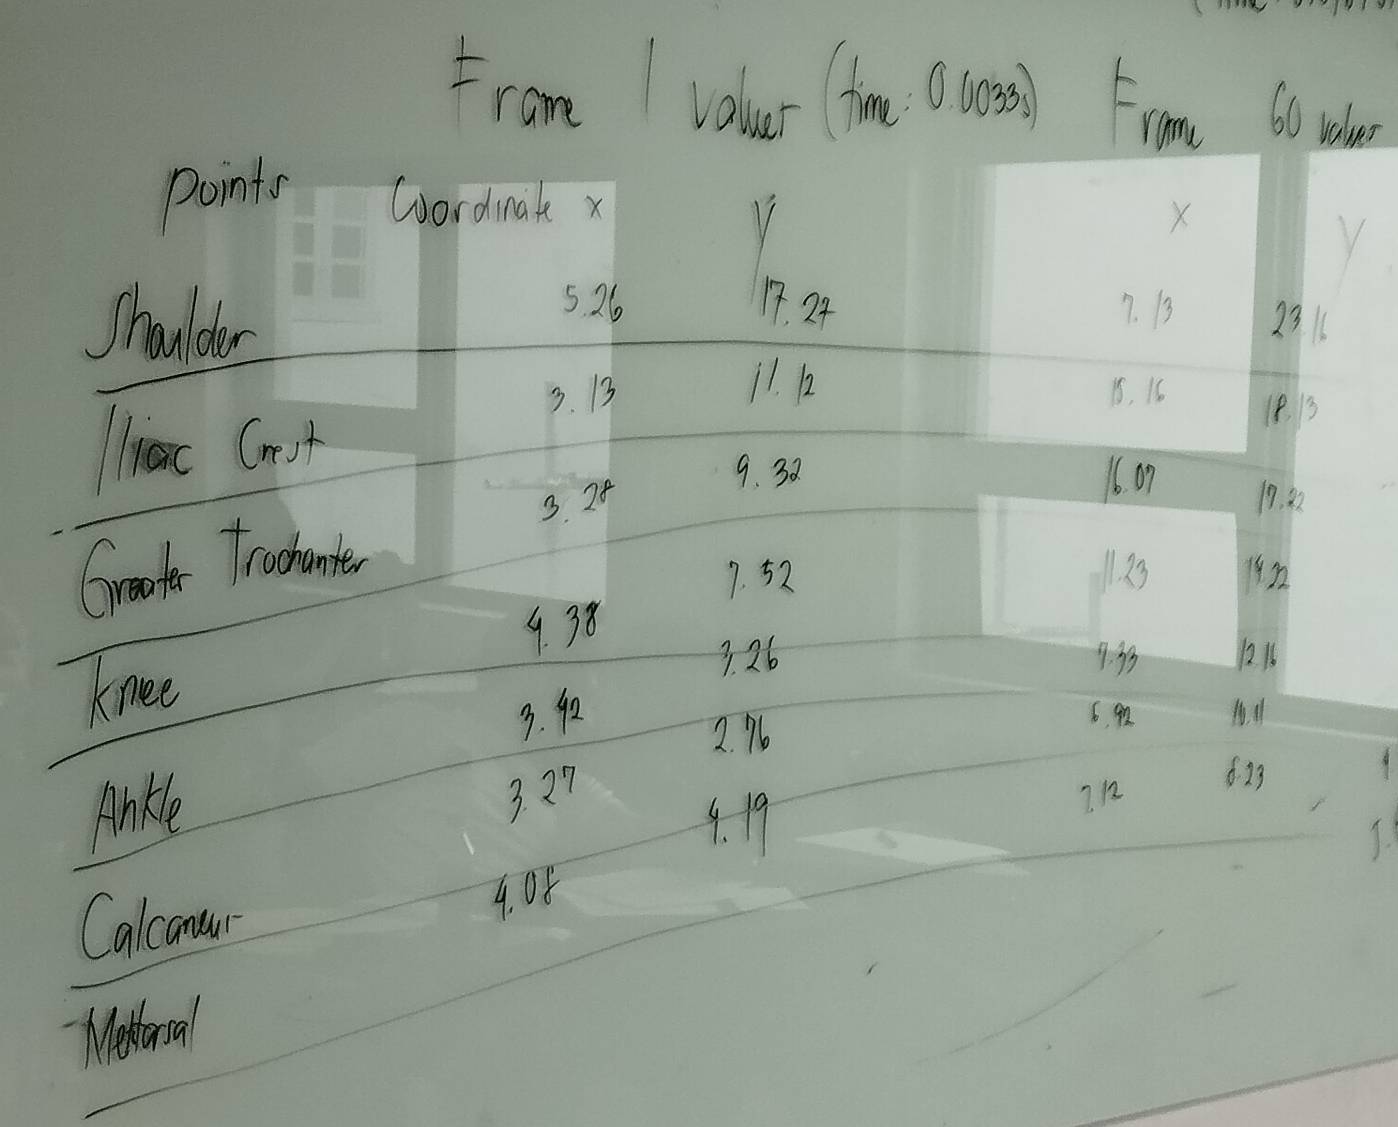 Frame 1 values (time: 0.0033s) Frame 60 values
Points Coordinate x y x y
Shoulder 5.26 17.27 7.13 23.16
Iliac Crest 3.13 11.12 15.16 18.13
Greater Trochanter 3.28 9.32 16.07 17.22
Knee 4.38 7.52 11.23 14.22
Ankle 3.42 3.26 7.33 12.16
Calcaneus 3.27 2.76 6.92 10.11
Mettarsal 4.08 4.19 7.12 8.23